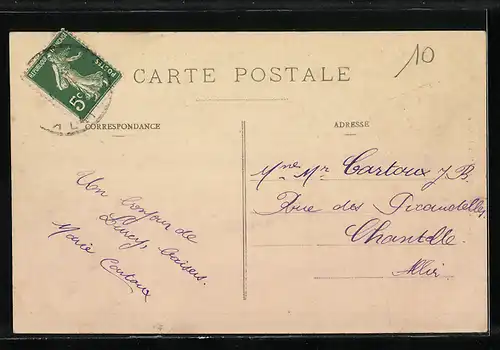 10
REPUBLIQUE FRANÇAISE
POSTES
5c
CARTE POSTALE
CORRESPONDANCE
Un bonjour de
Lurcy, baisers.
Marie Cartoux
ADRESSE
Mme Mr Cartoux J B.
Rue des Picaudelles
Chantelle
Allier